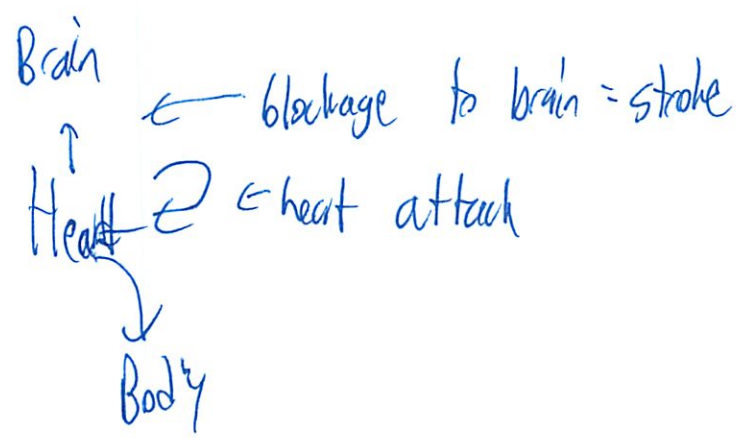 Brain
← blockage to brain = stroke
↑
Heart ← heart attack
Body